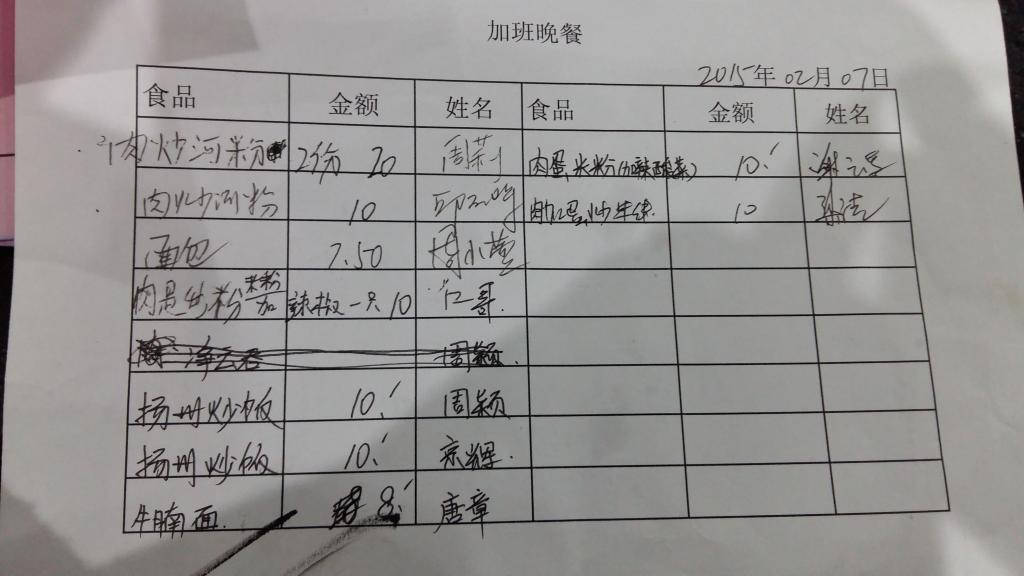 加班晚餐
2015年02月07日
食品 金额 姓名 食品 金额 姓名
肉炒河粉 2份 20 周莉 肉蛋米粉(加辣酸菜) 10.
肉炒河粉 10 10
面包 7.50 周小莹
肉蛋 粉 米粉 加辣椒一只 10 仁哥.
周颖.
扬州炒饭 10. 周颖
扬州炒饭 10. 京辉.
牛腩面. 8. 唐章